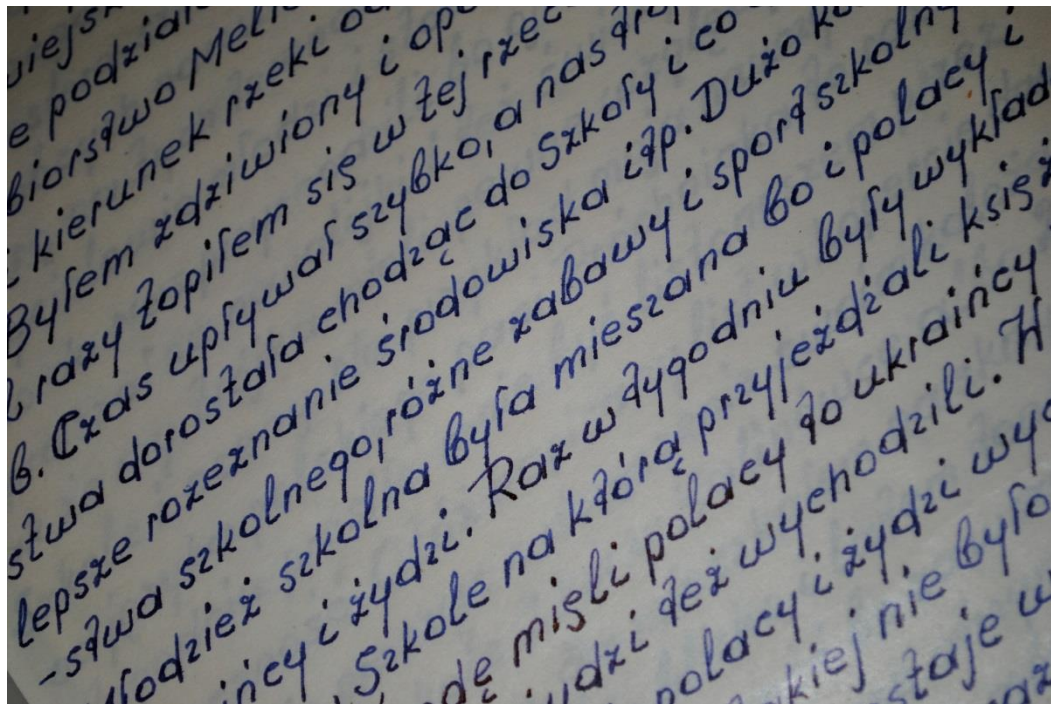 wiejsk
e podział
biorstwo Meli
i kierunek rzeki od
Byłem zdziwiony i op
razy topiłem się w tej rzec
b. Czas upływał szybko, a nas dro
stwa dorostała chodząc do szkoły i co
lepsze rozeznanie środowiska itp. Dużo k
-stwa szkolnego, różne zabawy i sport szkolny
łodzież szkolna była mieszana bo i polacy i
ińcy i żydzi. Raz w tygodniu były wykład
Szkole na którą przyjeżdzali księż
dę mieli polacy to ukraińcy
i żydzi też wychodzili. W
polacy i żydzi wyc
akiej nie było
staje w